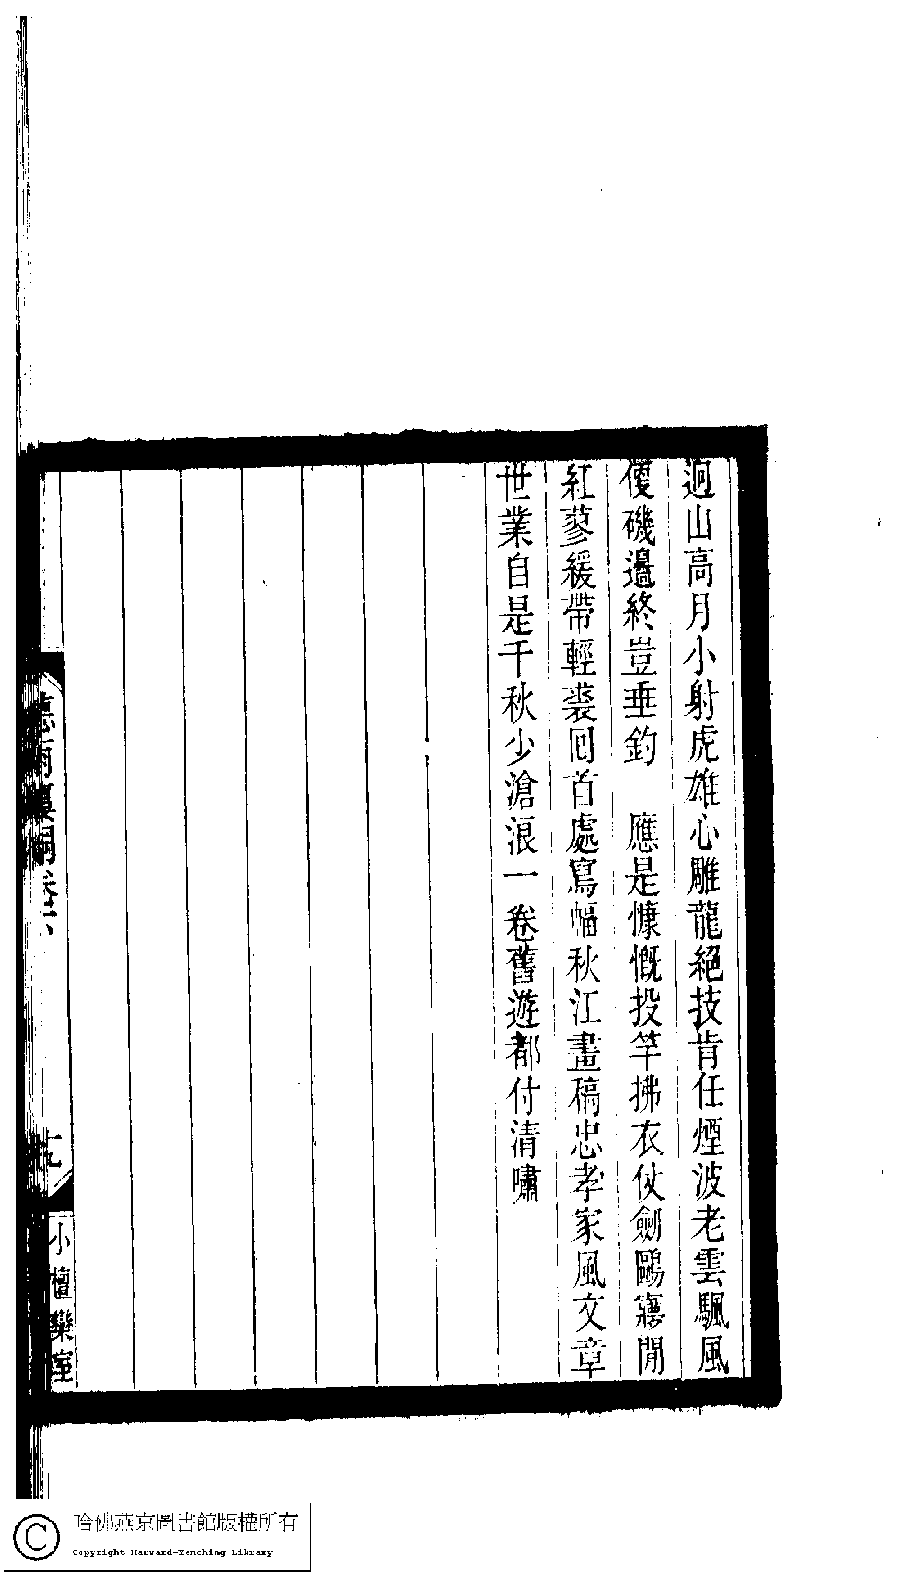 迥山高月小射虎雄心雕龍絕技肯任煙波老雲颿風
傻磯邊終豈垂釣　應是慷慨投竿拂衣仗劍鷗寤閒
紅蓼緩帶輕裘囘首處寫幅秋江畫稿忠孝家風文章
世業自是千秋少滄浪一卷舊遊都付清嘯
小檀欒室
哈佛燕京圖書館版權所有
Copyright Harvard-Yenching Library